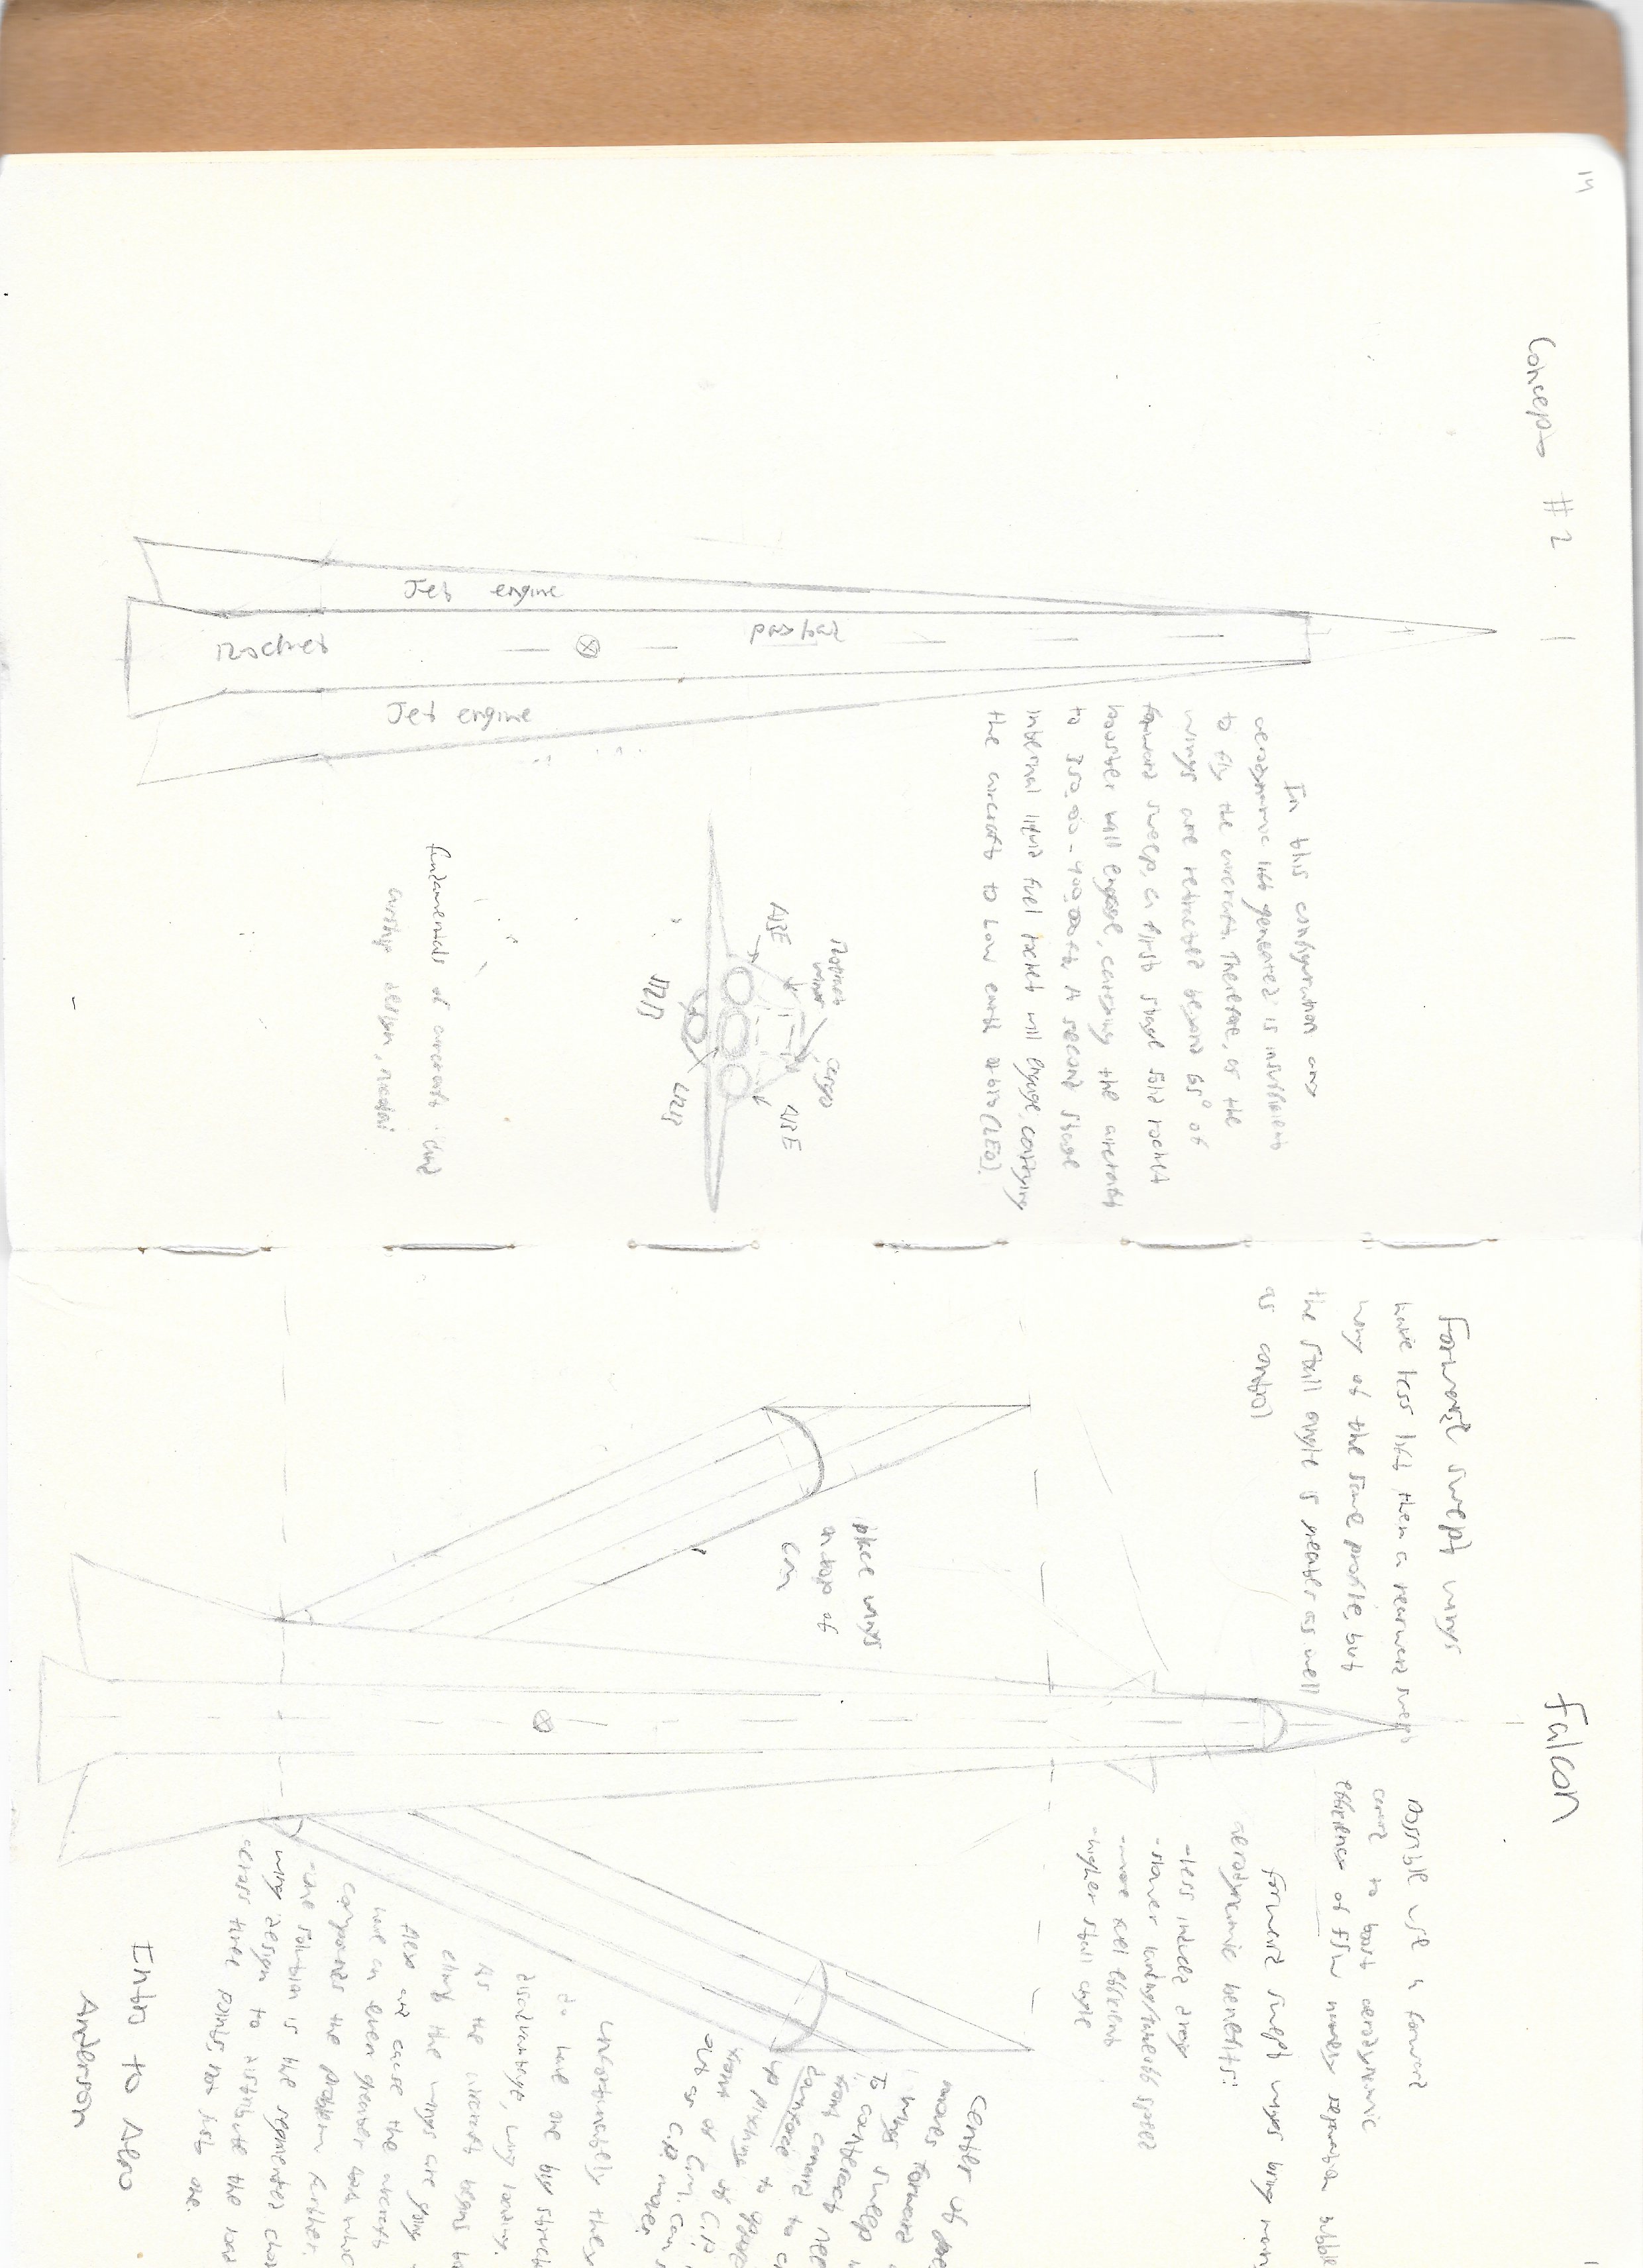 14
Concept #2
In this configuration any
aerodynamic lift generated is insufficient
to fly the aircraft. Therefore, as the
wings are retracted beyond 65° of
forward sweep, a first stage solid rocket
booster will engage, carrying the aircraft
to 350,000-400,000ft. A second stage
internal liquid fuel rocket will engage, carrying
the aircraft to Low earth orbit (LEO).
payload
Jet engine
Jet engine
Rocket
cargo
ABE
ABE
SRB
LRB
fundamentals of aircraft and
airship design, nicolai
Falcon
Forward swept wings
have less lift then a rearward swept
wing of the same profile, but
the stall angle is greater as well
as control
possible use a forward
canard to boost aerodynamic
efficiency of FSW namely separation bubble
forward swept wings bring many
aerodynamic benefits:
-less induced drag
-slower landing/takeoff speed
-more fuel efficient
-higher stall angle
place wings
on top of
cm
Center of pres
moves forward
wings sweep
To counteract
front canard to
downforce to oppose
up pitching of C.P.
front of C.M. Can
out as C.P. moves.
unfortunately they
do have one big struct
disadvantage, wing loading.
As the aircraft begins to
climb the wings are going
flex and cause the aircraft
have an even greater AOA whic
compounds the problem further.
-one solution is the segmented
wing design to distribute the load
across three points, not just one.
Intro to Aero
Anderson